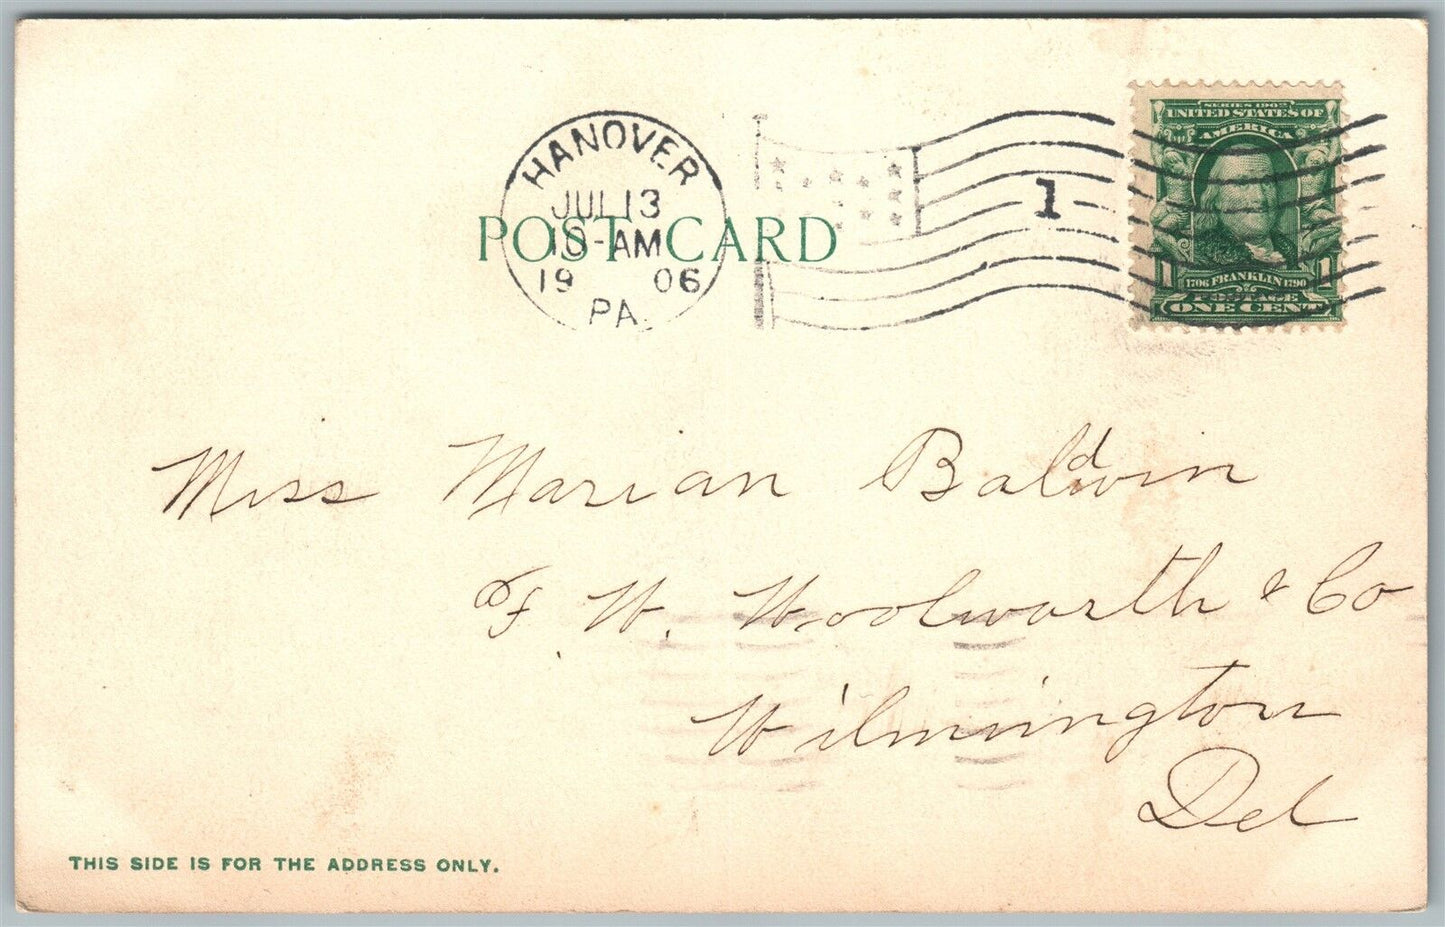 HANOVER
JUL 13
10-AM
1906
PA.
1
POST CARD
SERIES 1902
UNITED STATES OF
AMERICA
1 1706 FRANKLIN 1790 1
POSTAGE
ONE CENT
Miss Marian Baldwin
F. W. Woolworth & Co
Wilmington
Del
THIS SIDE IS FOR THE ADDRESS ONLY.